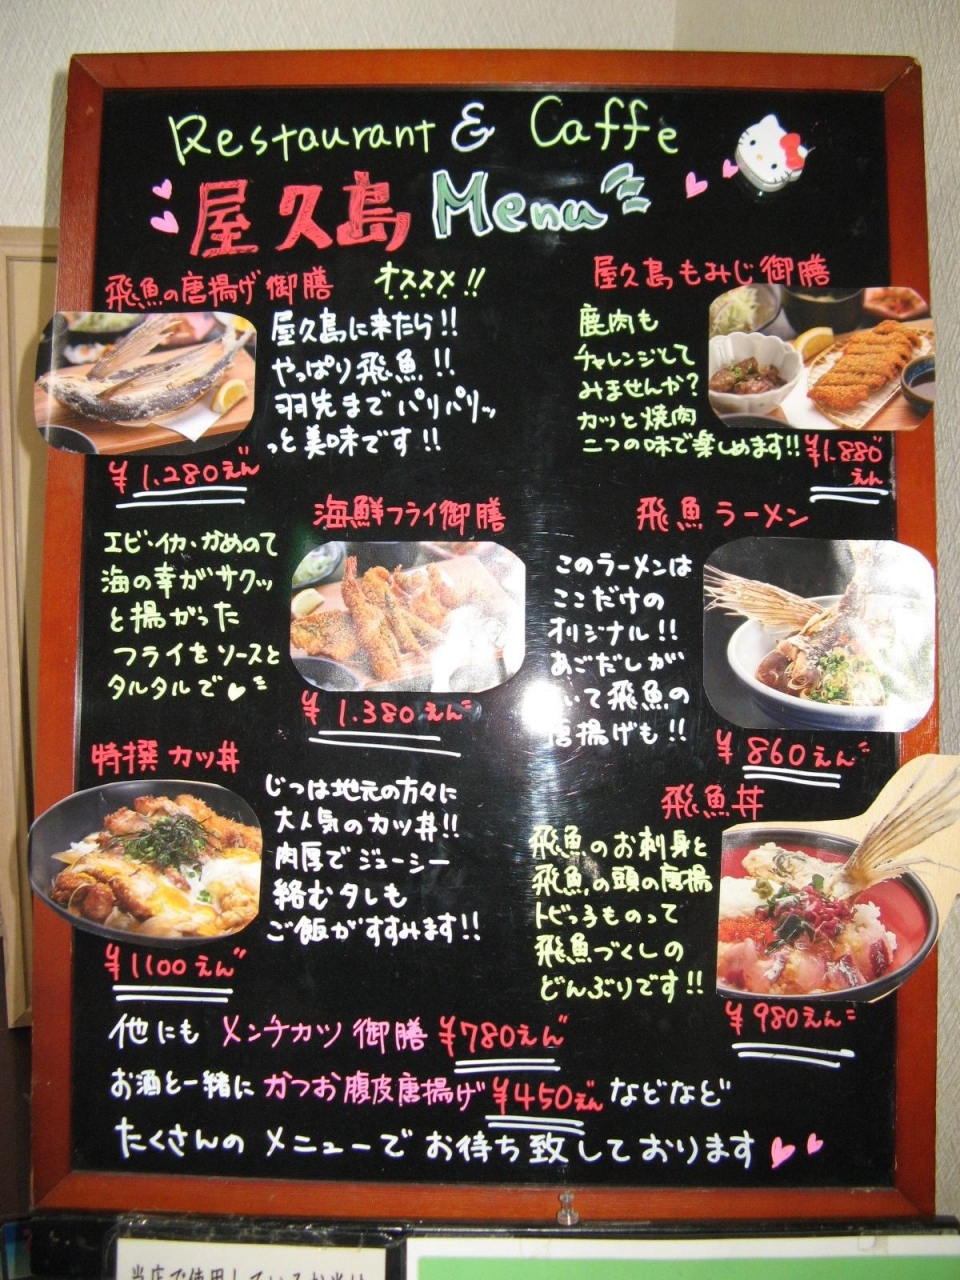 Restaurant & Caffe
屋久島 Menu
飛魚の唐揚げ御膳 オススメ!!
屋久島に来たら!!
やっぱり飛魚!!
羽先までパリパリッ
っと美味です!!
¥1.280えん
屋久島もみじ御膳
鹿肉も
チャレンジして
みませんか?
カツと焼肉
二つの味で楽しめます!!
¥1.880
えん
海鮮フライ御膳
エビ・イカ・かめのて
海の幸がサクッ
と揚がった
フライをソースと
タルタルで
¥1.380えん
飛魚ラーメン
このラーメンは
ここだけの
オリジナル!!
あごだしが
いて飛魚の
唐揚げも!!
¥860えん
特撰カツ丼
じつは地元の方々に
大人気のカツ丼!!
肉厚でジューシー
絡むタレも
ご飯がすすみます!!
¥1100えん
飛魚丼
飛魚のお刺身と
飛魚の頭の唐揚
トビっ子ものって
飛魚づくしの
どんぶりです!!
¥980えん
他にも メンチカツ御膳 ¥780えん
お酒と一緒に かつお腹皮唐揚げ ¥450えん などなど
たくさんの メニューで お待ち致しております
当店で使用しているお米は